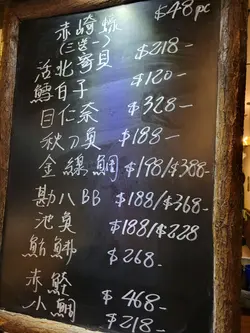 赤崎蠔 $48pc
(三送一)
活北寄貝 $218-
鱈白子 $120-
目仁奈 $328-
秋刀魚 $188-
金線鯛 $198/$388-
勘八BB $188/$368-
池魚 $188/$228
魴鮄 $268-
赤鰹 $468-
小鯛 $218-